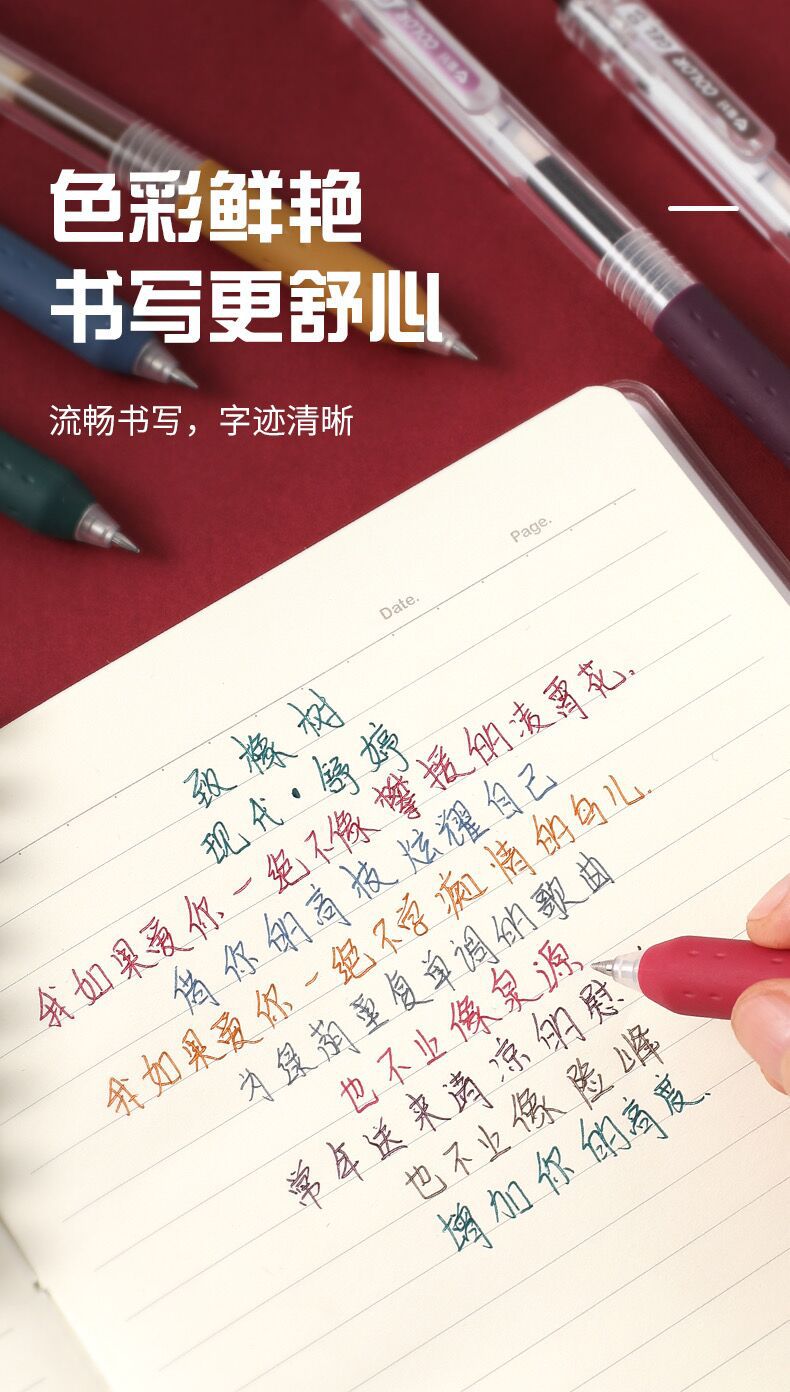 色彩鲜艳
书写更舒心
流畅书写，字迹清晰
Page.
Date.
致橡树
现代·舒婷
我如果爱你-绝不像攀援的凌霄花.
借你的高枝炫耀自己
我如果爱你-绝不学痴情的鸟儿.
为绿荫重复单调的歌曲
也不止像泉源
常年送来清凉的慰
也不止像险峰
增加你的高度.